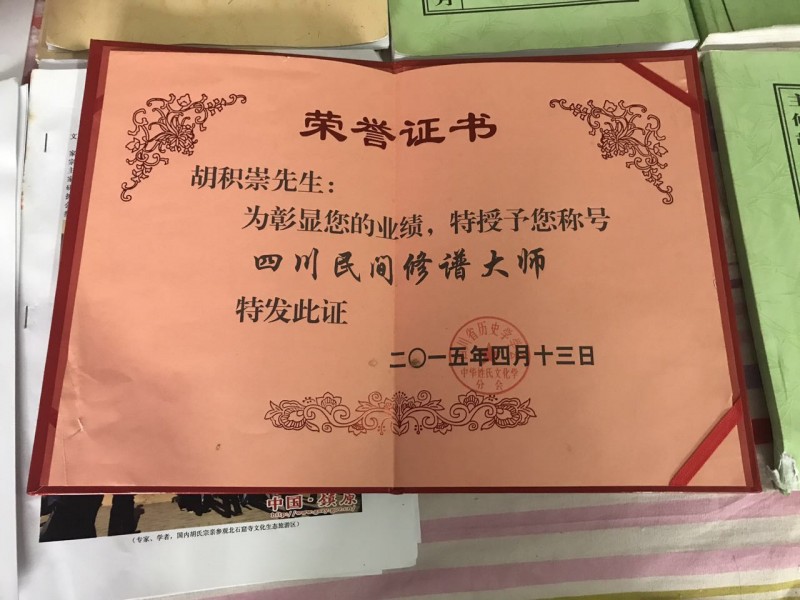 荣誉证书
胡积崇先生：
为彰显您的业绩，特授予您称号
四川民间修谱大师
特发此证
二〇一五年四月十三日
川省历史学
中华姓氏文化学
分会
中国·镇原
（专家、学者、国内胡氏宗亲参观北石窟寺文化生态旅游区）
方
主
修